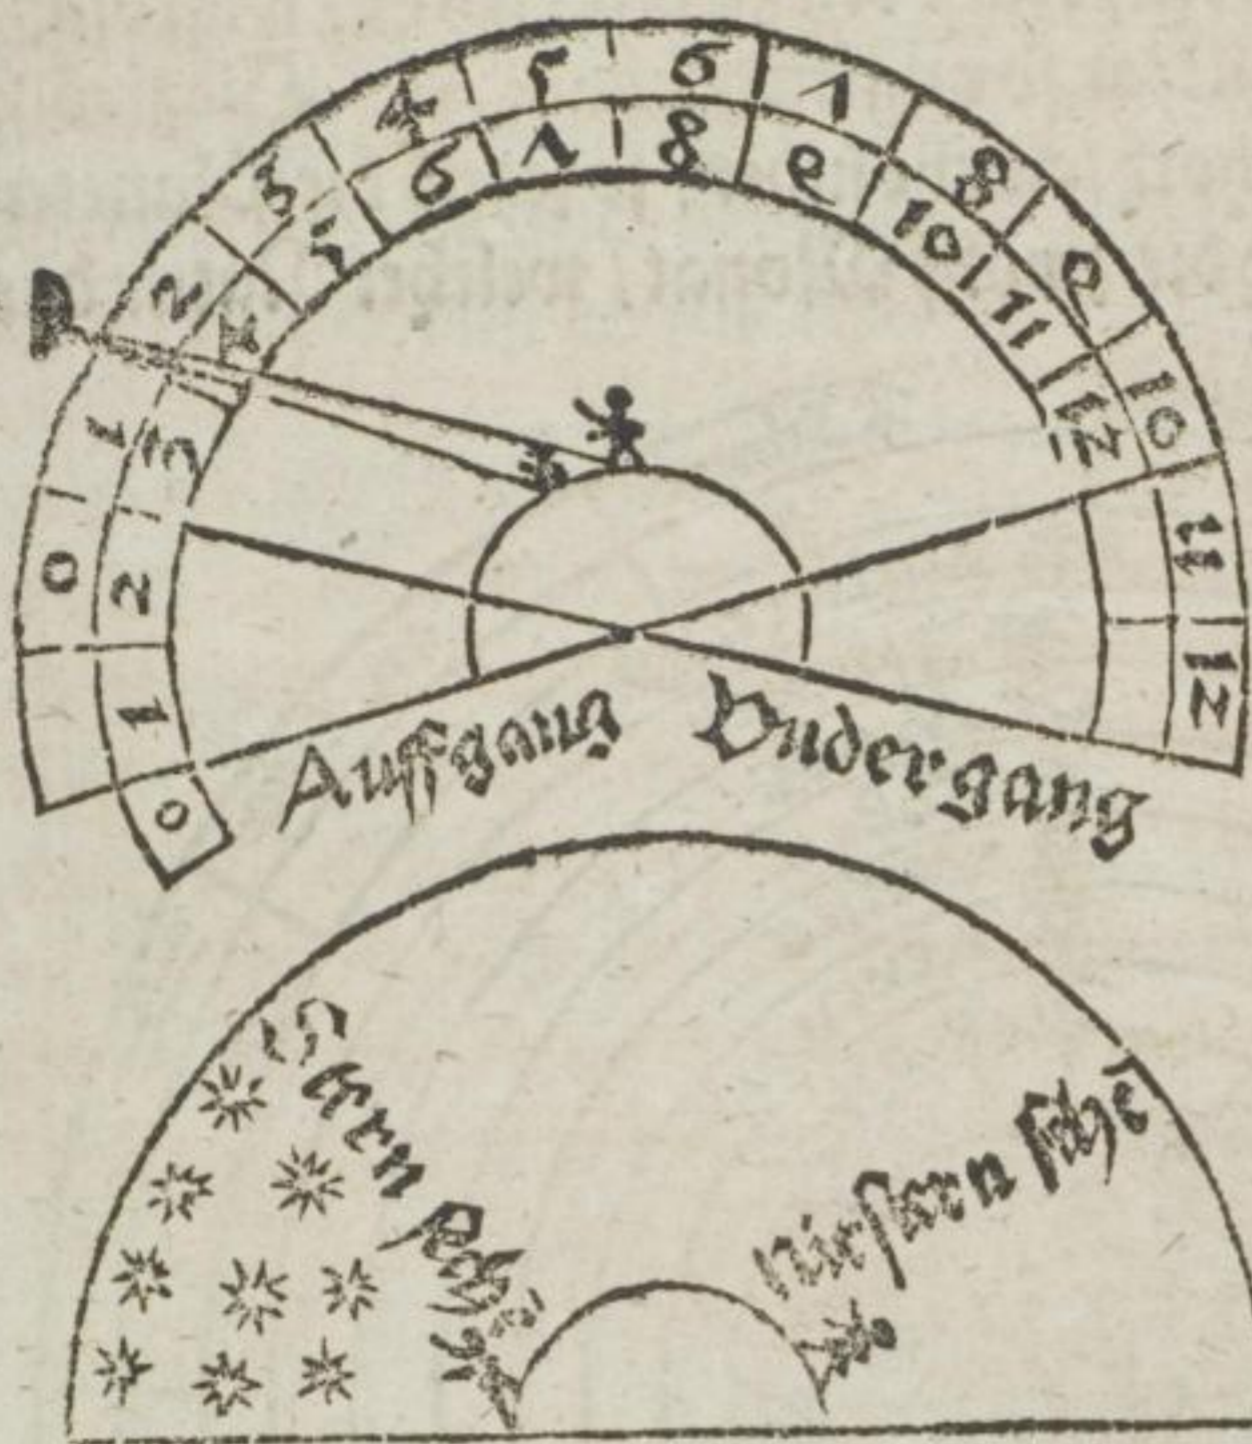 0 1 2 3 4 5 6 7 8 9 10 11 12
0 1 2 3 4 5 6 7 8 9 10 11 12
Auffgang Vndergang
Stern sehē
nit stern sehē